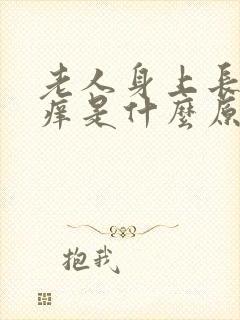 老人身上長
痒是什麼原
抱我